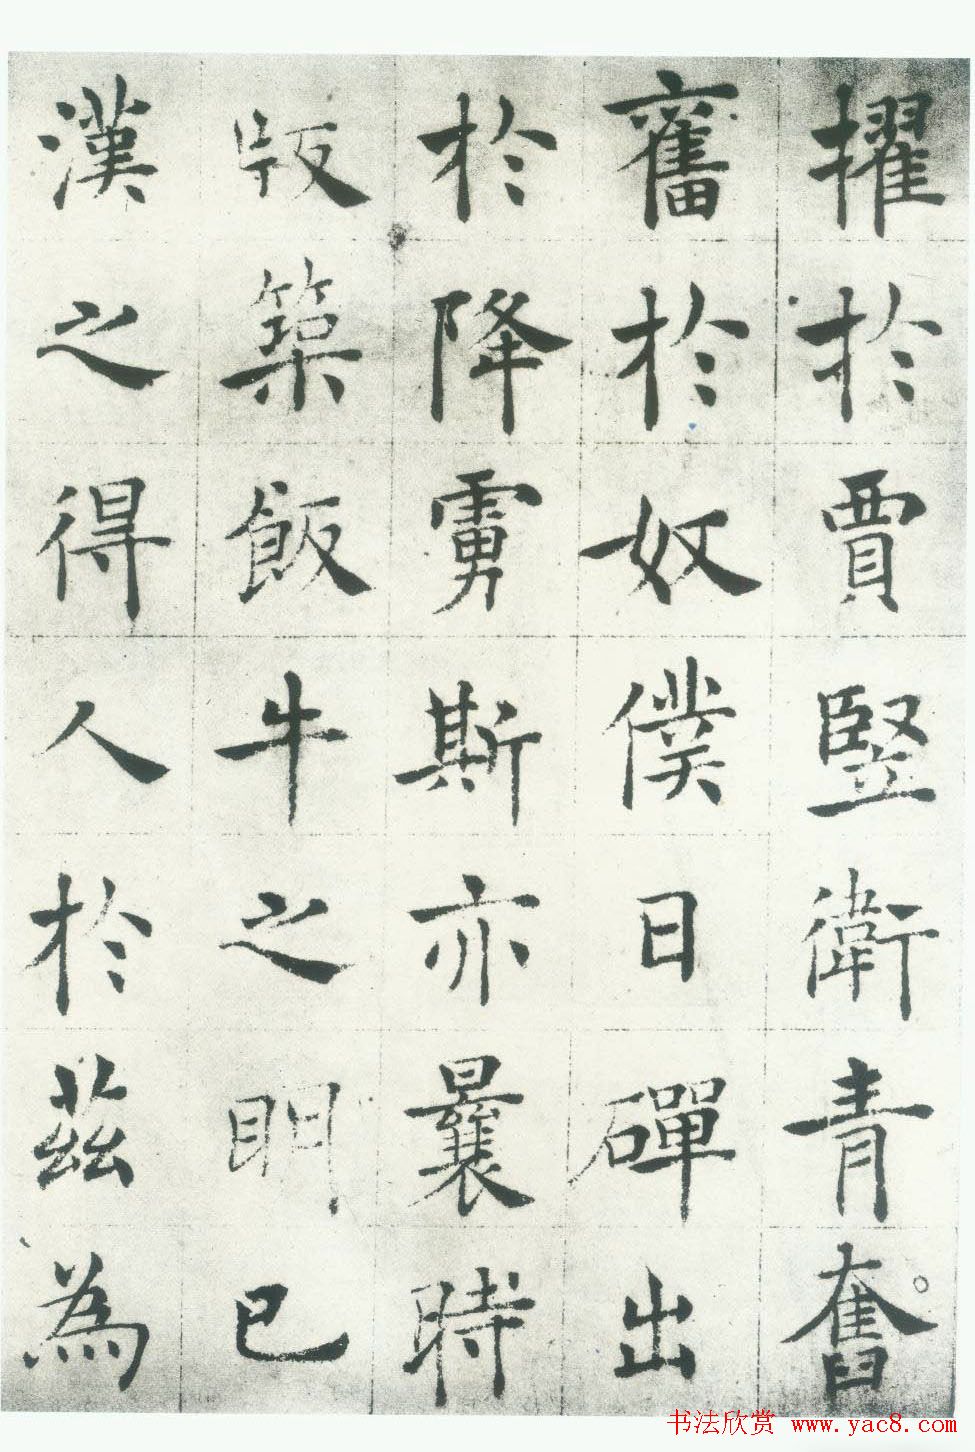 擢於賈竪衛青奮
奮於奴僕日磾出
於降虜斯亦曩時
版築飯牛之明已
漢之得人於茲為
书法欣赏 www.yac8.com